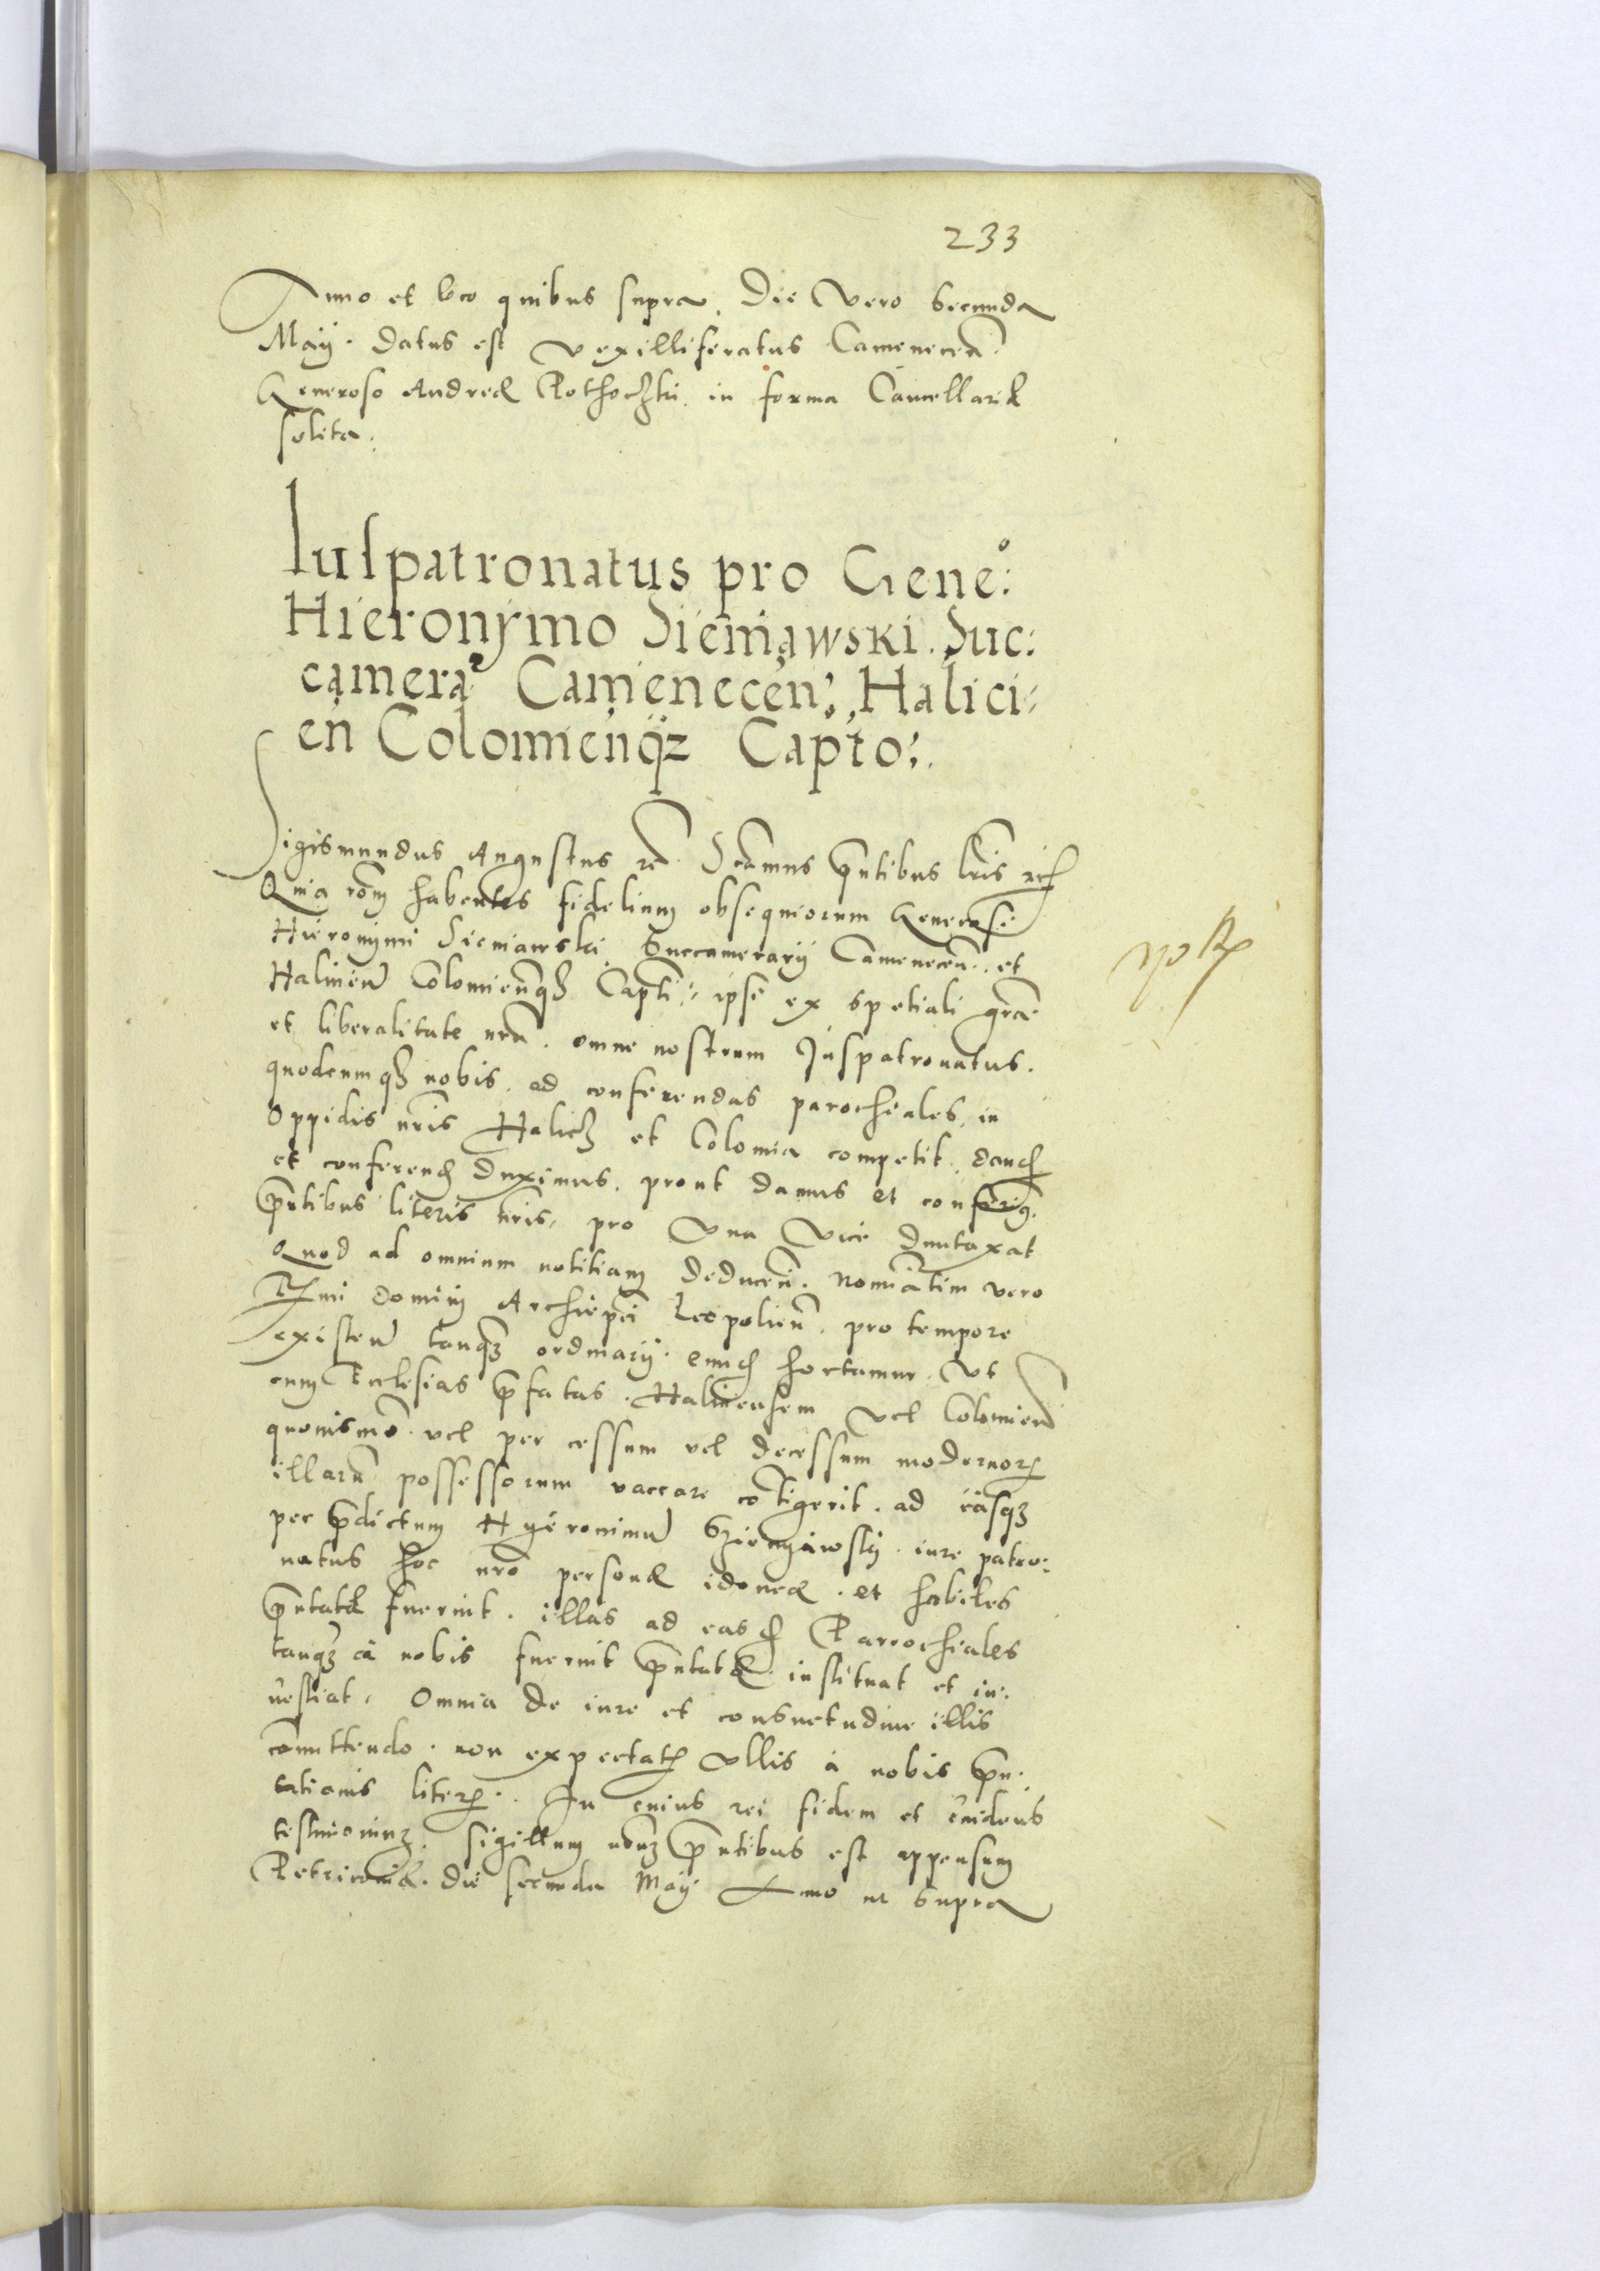 233
Anno et loco quibus supra. Die Vero Secunda
Maÿ. datus est Vexilliferatus Camenecen̄.
Generoso Andreæ Pothoczki, in forma Cancellariæ
solita.
Iuspatronatus pro Gene:º
Hieronymo Sieniawski. Suc:
camera Camenecen̄:, Halici⸗
en̄ Colomien̄qꝫ Capto:.
Sigismundus Augustus rē. Scām̄us pn̄tibus lr̄is
Quia rōm habentes fidelium obsequiorum Generosi
Hieronymi Sieniawski, Succamerarÿ Camenecen̄. et
Halicien̄ Colomien̄qꝫ Capti:, ipsi ex spetiali grā
et liberalitate nrā. omne nostrum Juspatronatus.
quodcumqꝫ nobis. ad conferendas parochiales, in
Oppidis nr̄is Halicz et Colomia competit, dand
et conferend duximus. prout damus et conferim̄.
pn̄tibus literis nr̄is, pro Vna Vice duntaxat
Quod ad omnium notitiam deducen̄. nominatim vero
Rmi dominj Archiep̄i Leopolien̄. pro tempore
existen̄ tanqꝫ ordinarÿ. eund hortamur. Vt
cum Ecclesias p̄fatas. Haliciensem Vel Colomien̄
quouismō. vel per cessum vel decessum modernorꝫ
illarū possessorum vaccare cōtigerit. ad easqꝫ
per p̄dictum Hyeronimū Szienyawsky. iure patro:
natus hoc nrō personæ idoneæ. et habiles
pn̄tatæ fuerint. illas ad easd Parrochiales
tanqꝫ à nobis fuerint pn̄tatæ. instituat et in:
uestiat. Omnia de iure et consuetudine illis
cōmittendo. non expectatꝫ Vllis à nobis pn̄:
tationis literꝫ. In cuius rei fidem et euidens
testimoniuꝫ. sigillum nr̄uꝫ pn̄tibus est appensum
Petricouiæ. die secunda Maÿ Anno ut supra